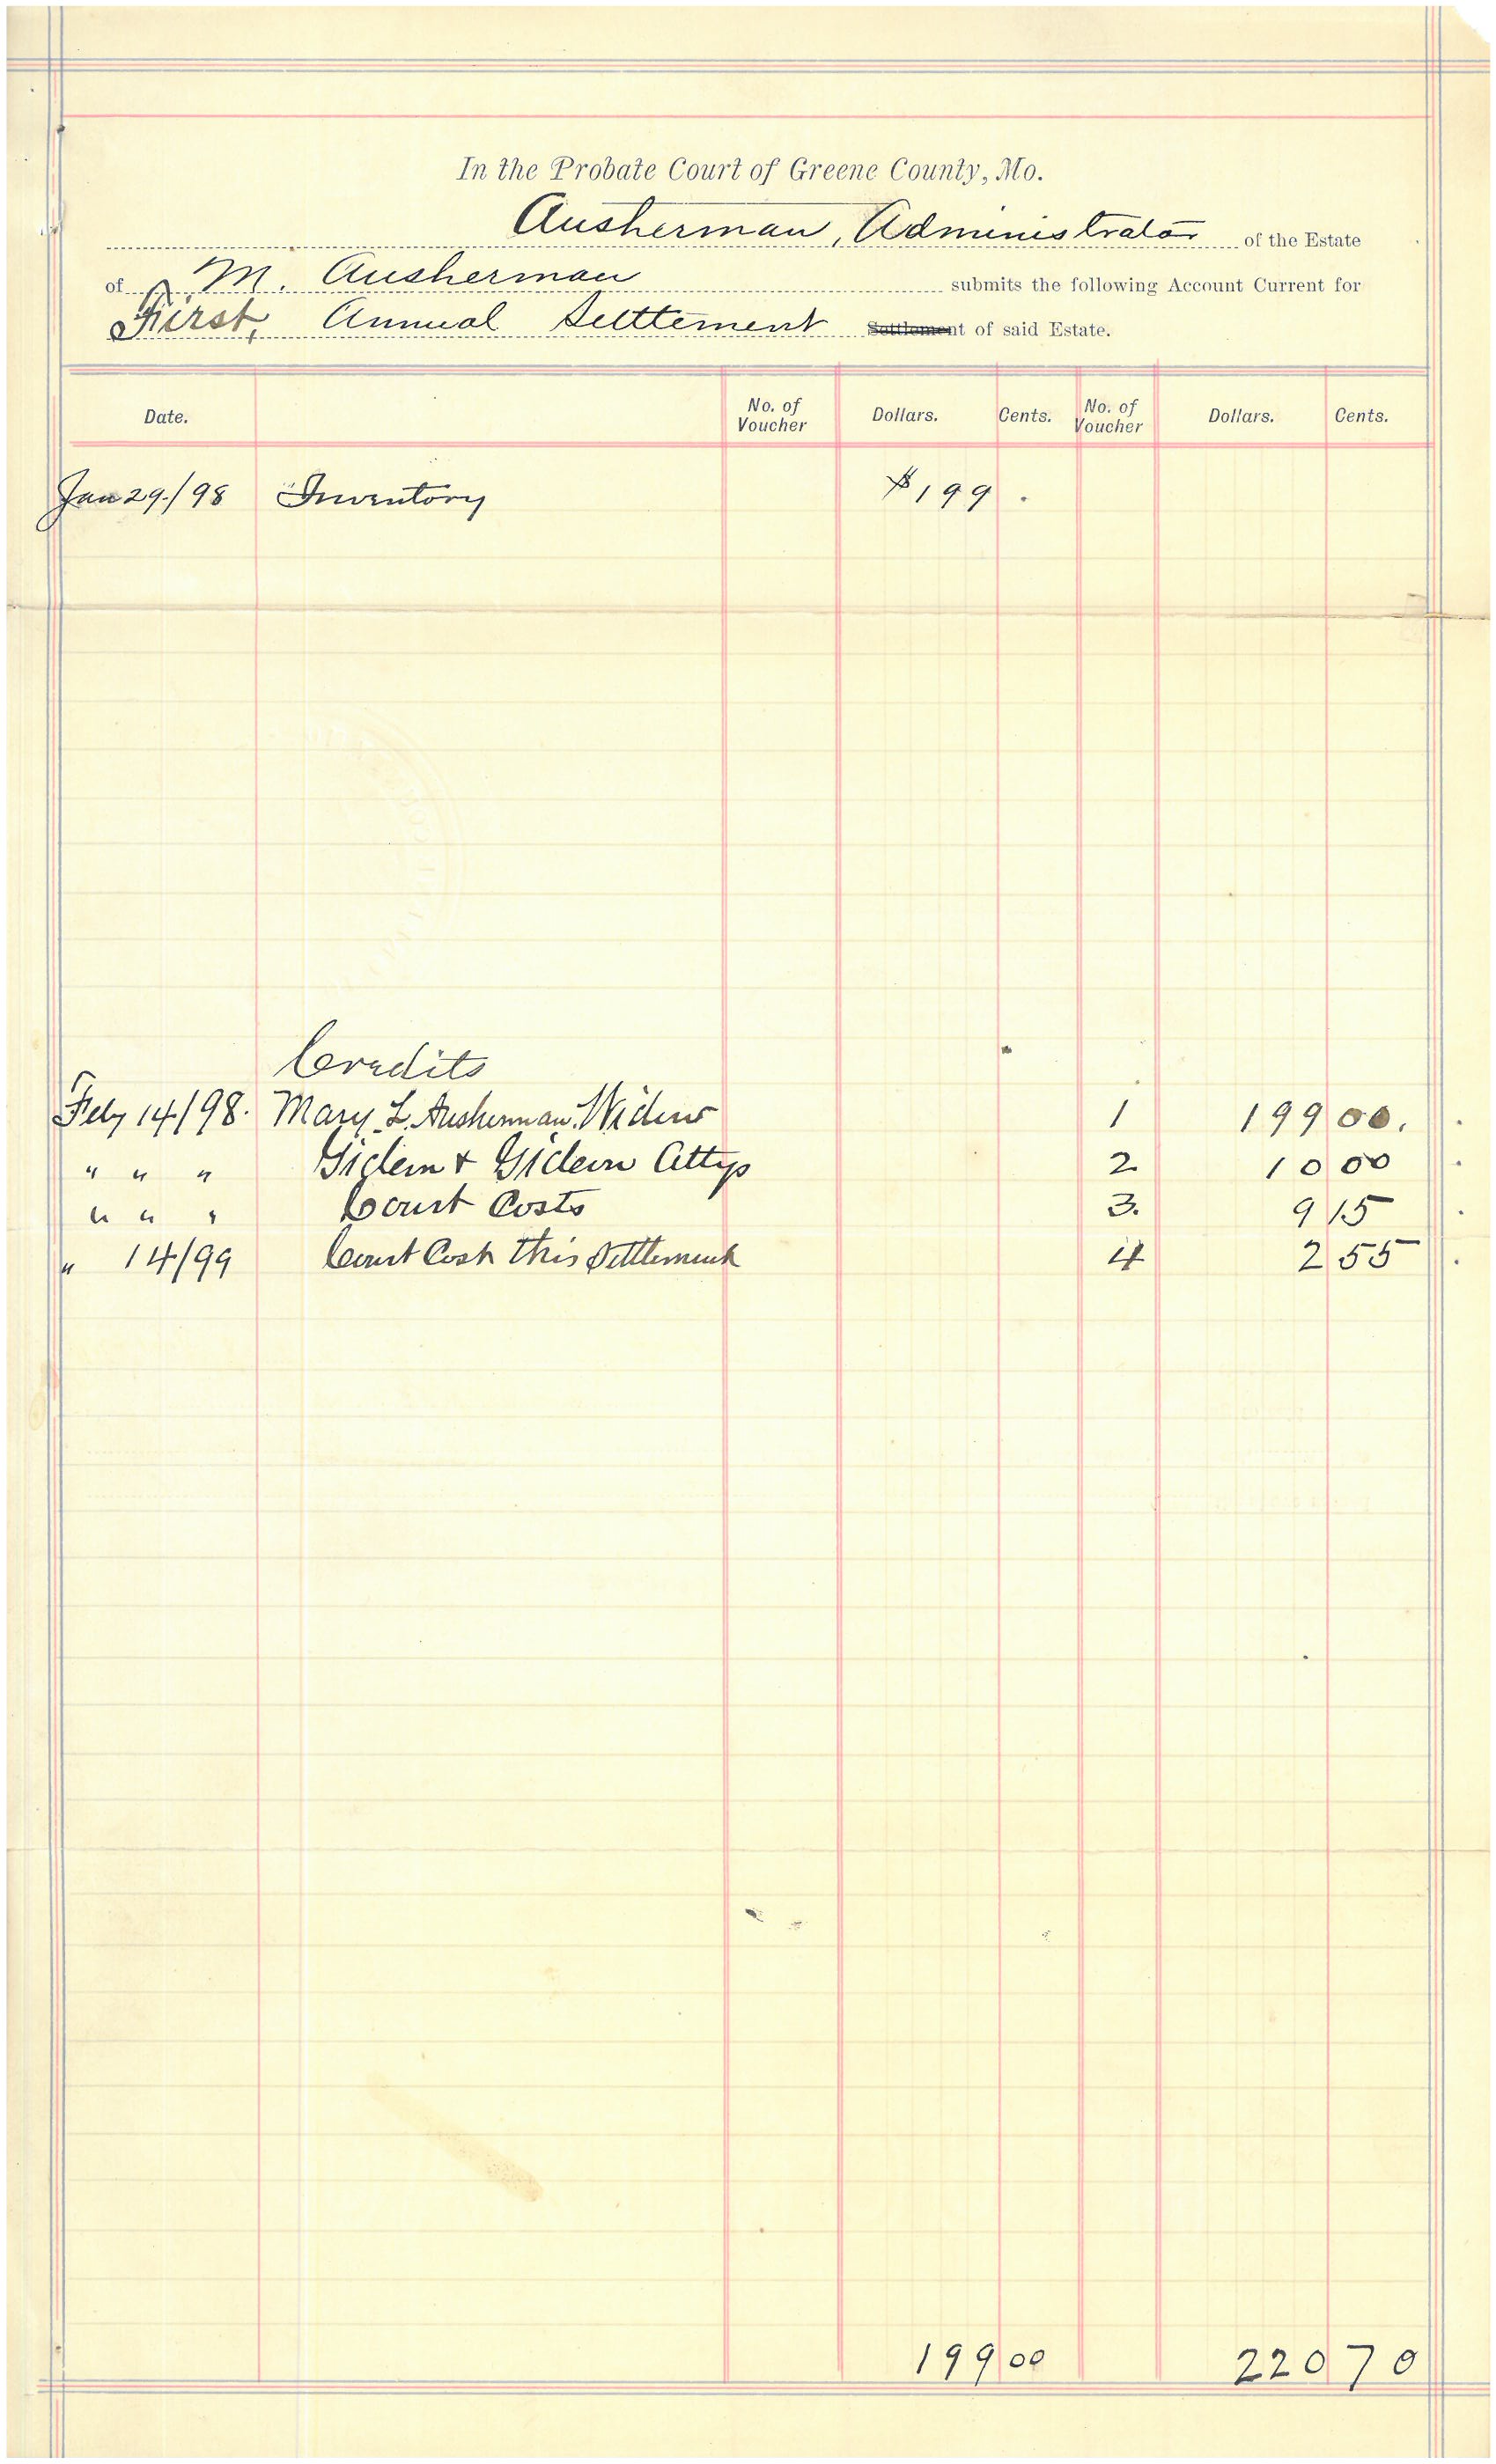 In the Probate Court of Greene County, Mo.
Ausherman, Administrator of the Estate
of M. Ausherman submits the following Account Current for
First, Annual Settlement Settlement of said Estate.
Date. No. of Voucher Dollars. Cents. No. of Voucher Dollars. Cents.
Jan 29./98 Inventory $199 .
Credits
Feby 14/98. Mary L. Ausherman. Widow 1 199 00.
" " " Gideon & Gideon Attys 2 10 00
" " " Court Costs 3. 9 15
" 14/99 Court Costs this Settlement 4 2 55
199 00 220 70